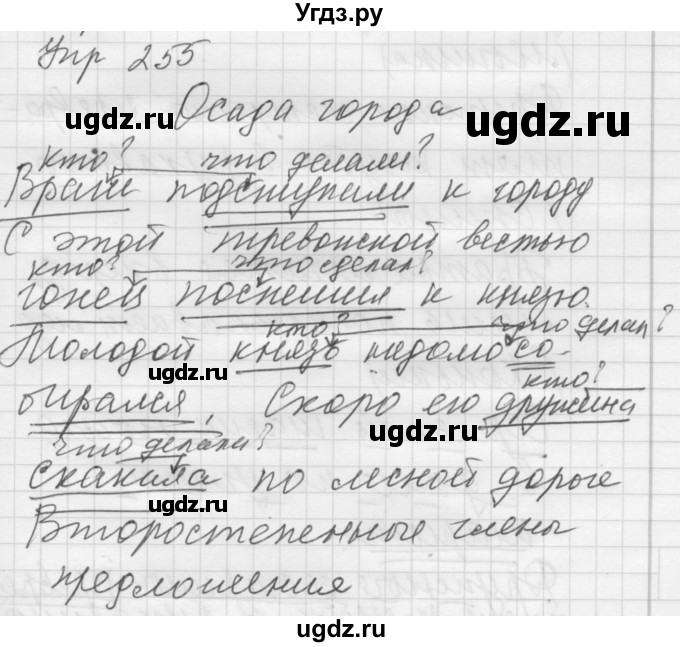 Угдз.ру
Упр 255
Осада города
кто? что делали?
Враги подступали к городу
С этой тревожной вестью
кто? что сделал?
гонец поспешил к князю.
кто? что делал?
Молодой князь недолго со-
кто?
бирался. Скоро его дружина
что делала?
скакала по лесной дороге
Второстепенные члены
предложения
ugdz.ru
ugdz.ru
ugdz.ru
ugdz.ru
ugdz.ru
ugdz.ru
ugdz.ru
ugdz.ru
ugdz.ru